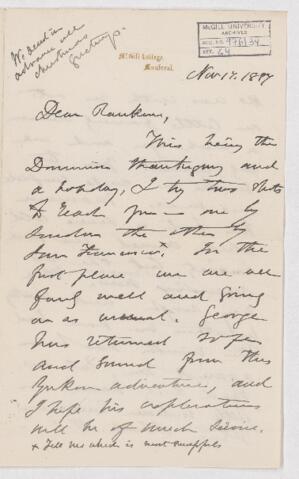 We send in
advance all
Christmas
Greetings.
McGILL UNIVERSITY
ARCHIVES
ACC. NO. 976/34
REF. 64
McGill College,
Montreal.
Nov 17. 1887
Dear Rankine,
This being the
Dominion thanksgiving and
a holiday, I try two shots
to reach you – one by
London the other by
San Francisco. x In the
first place we are all
fairly well and going
on as usual. George
has returned safe
and sound from his
Yukon adventure, and
I hope his explorations
will be of much service.
x Tell me which is most successful